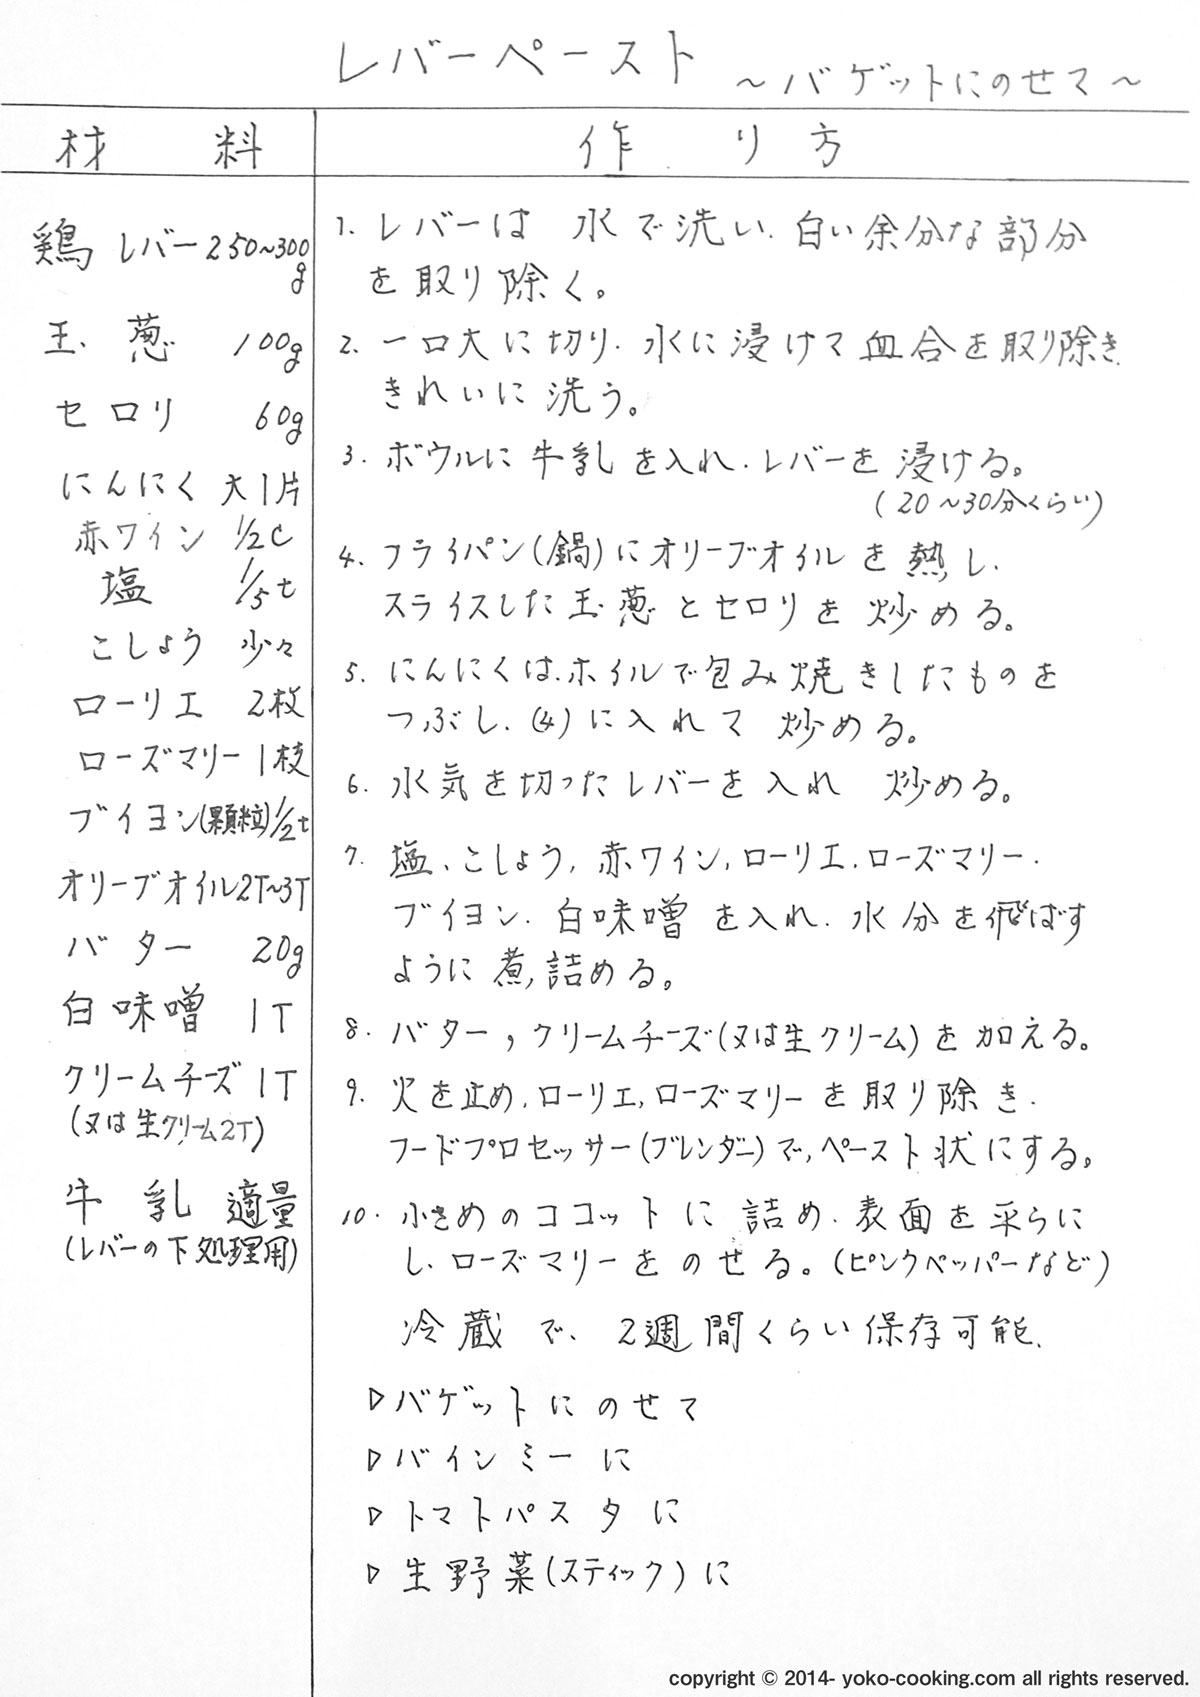 レバーペースト ～バゲットにのせて～
材料
作り方
鶏レバー 250~300g
玉葱 100g
セロリ 60g
にんにく 大1片
赤ワイン 1/2C
塩 1/5t
こしょう 少々
ローリエ 2枚
ローズマリー 1枝
ブイヨン(顆粒) 1/2t
オリーブオイル 2T~3T
バター 20g
白味噌 1T
クリームチーズ 1T
(又は生クリーム2T)
牛乳 適量
(レバーの下処理用)
1. レバーは 水で洗い、白い余分な部分
を取り除く。
2. 一口大に切り、水に浸けて血合を取り除き
きれいに洗う。
3. ボウルに牛乳を入れ、レバーを浸ける。
(20~30分くらい)
4. フライパン(鍋)にオリーブオイルを熱し、
スライスした玉葱とセロリを炒める。
5. にんにくは、ホイルで包み焼きしたものを
つぶし、(4)に入れて 炒める。
6. 水気を切ったレバーを入れ 炒める。
7. 塩、こしょう、赤ワイン、ローリエ、ローズマリー、
ブイヨン、白味噌を入れ、水分を飛ばす
ように煮詰める。
8. バター、クリームチーズ(又は生クリーム)を加える。
9. 火を止め、ローリエ、ローズマリーを取り除き、
フードプロセッサー(ブレンダー)で、ペースト状にする。
10. 小さめのココットに詰め、表面を平らに
し、ローズマリーをのせる。(ピンクペッパーなど)
冷蔵で、2週間くらい保存可能、
▷バゲットにのせて
▷バインミーに
▷トマトパスタに
▷生野菜(スティック)に
copyright © 2014- yoko-cooking.com all rights reserved.